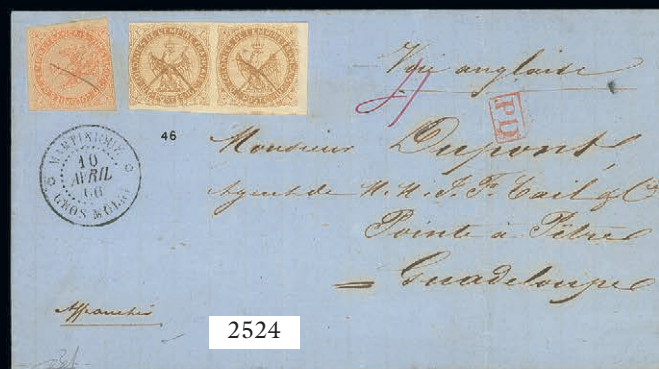 Voie anglaise
PD
46
MARTINIQUE
10
AVRIL
GROS MORNE
Monsieur Dupont,
Agent de M.M. J.F. Cail & Cie
Pointe à Pitre
= Guadeloupe
Affranchie
2524